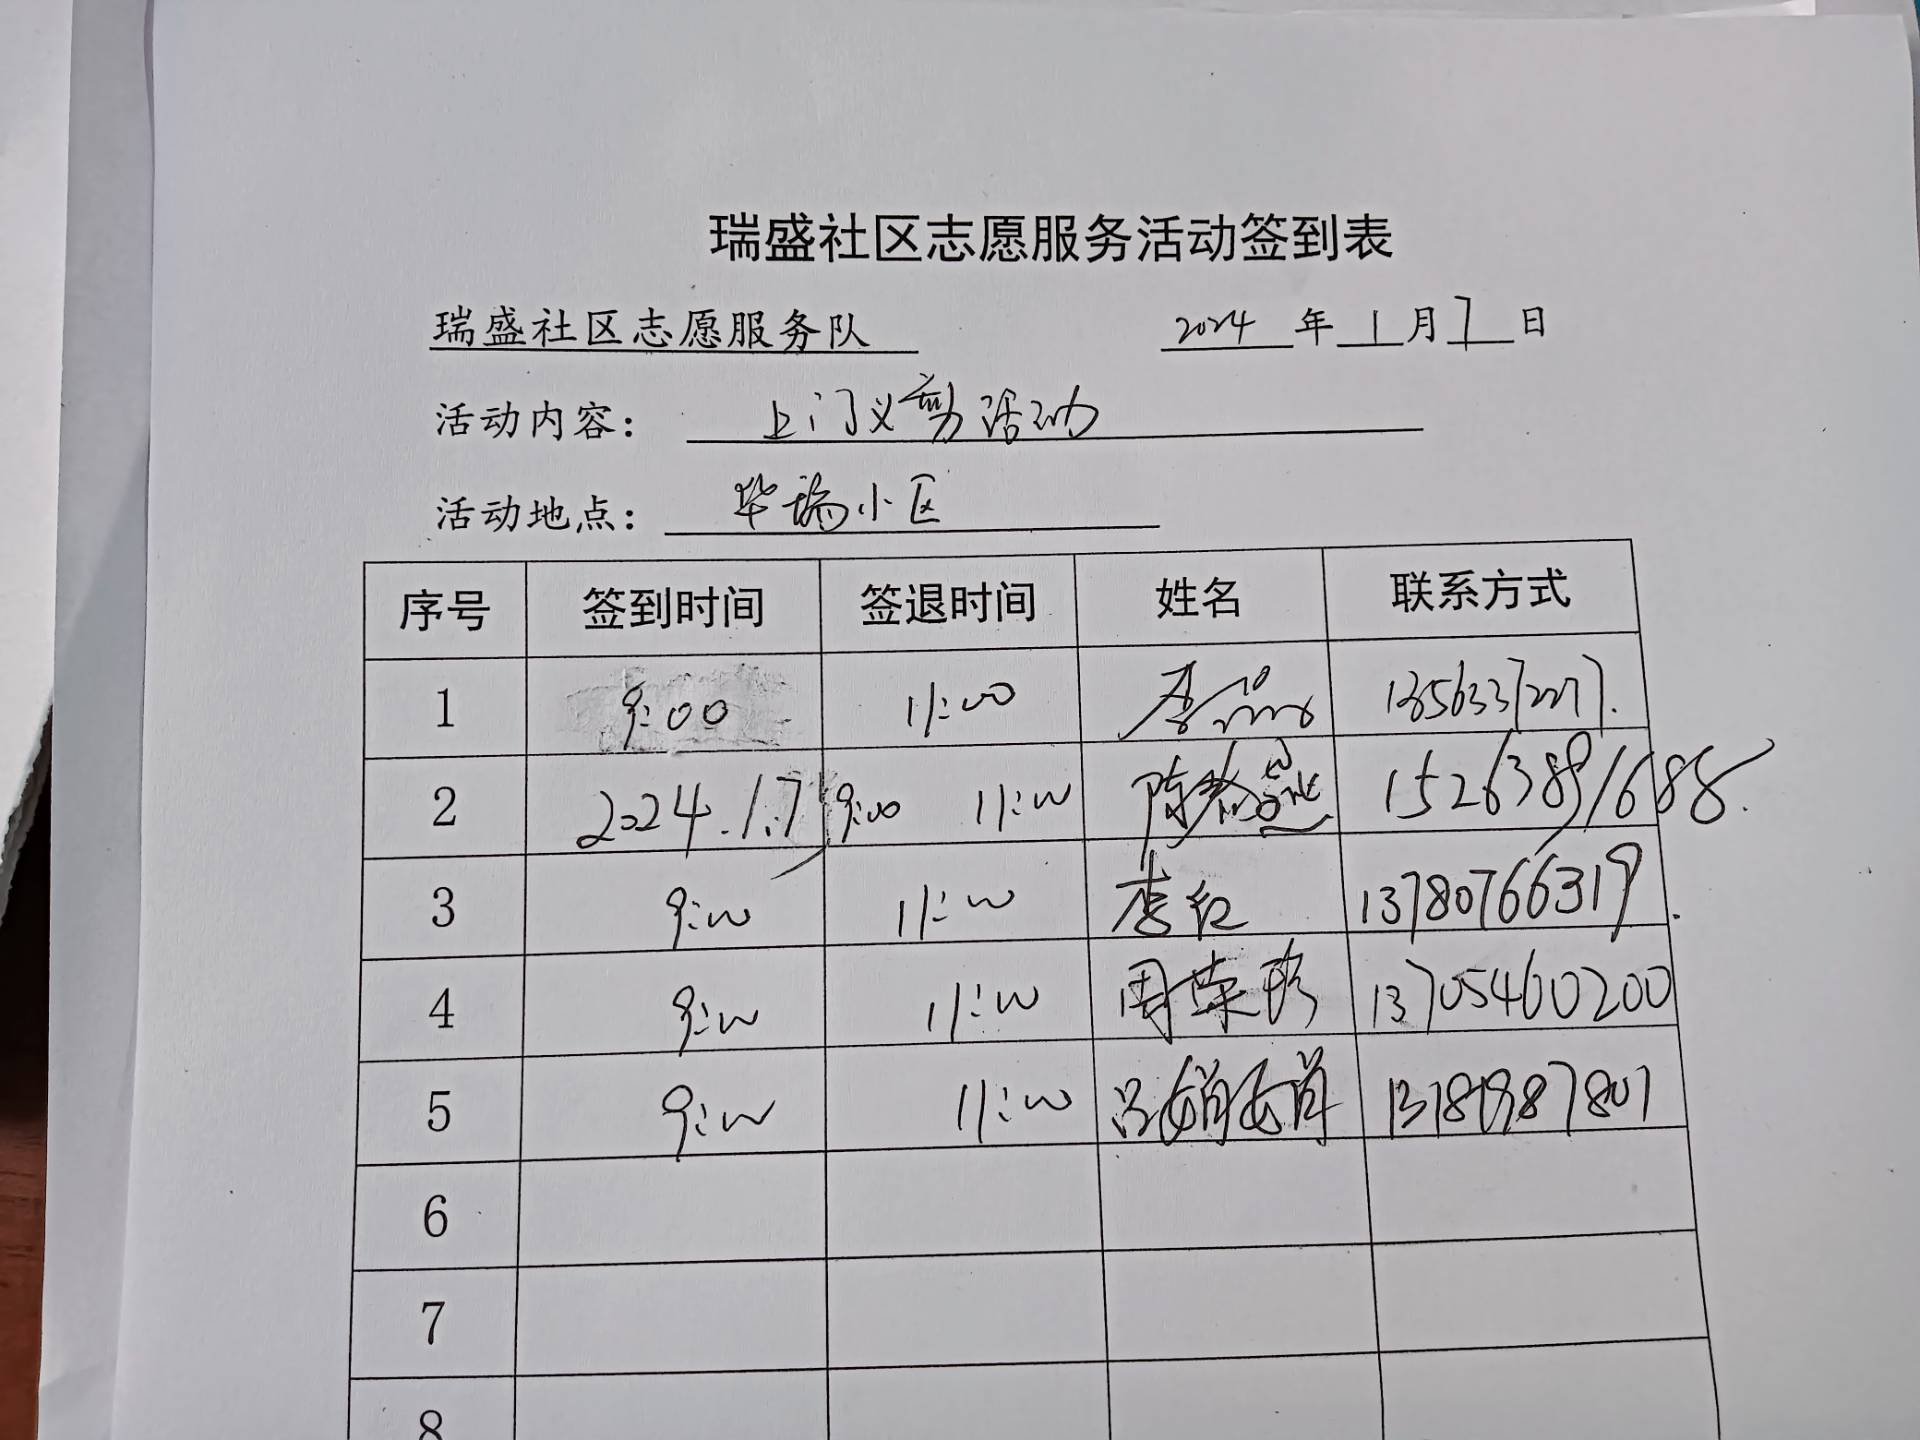 瑞盛社区志愿服务活动签到表
瑞盛社区志愿服务队 2024 年 1 月 7 日
活动内容: 上门义剪活动
活动地点: 华瑞小区
序号 签到时间 签退时间 姓名 联系方式
1 9:00 11:00 李 13563371227.
2 2024.1.7 9:00 11:00 陈 15263891688.
3 9:00 11:00 李红 13780766319.
4 9:00 11:00 周荣珍 13705460200
5 9:00 11:00 吕娟娟
6
7
8